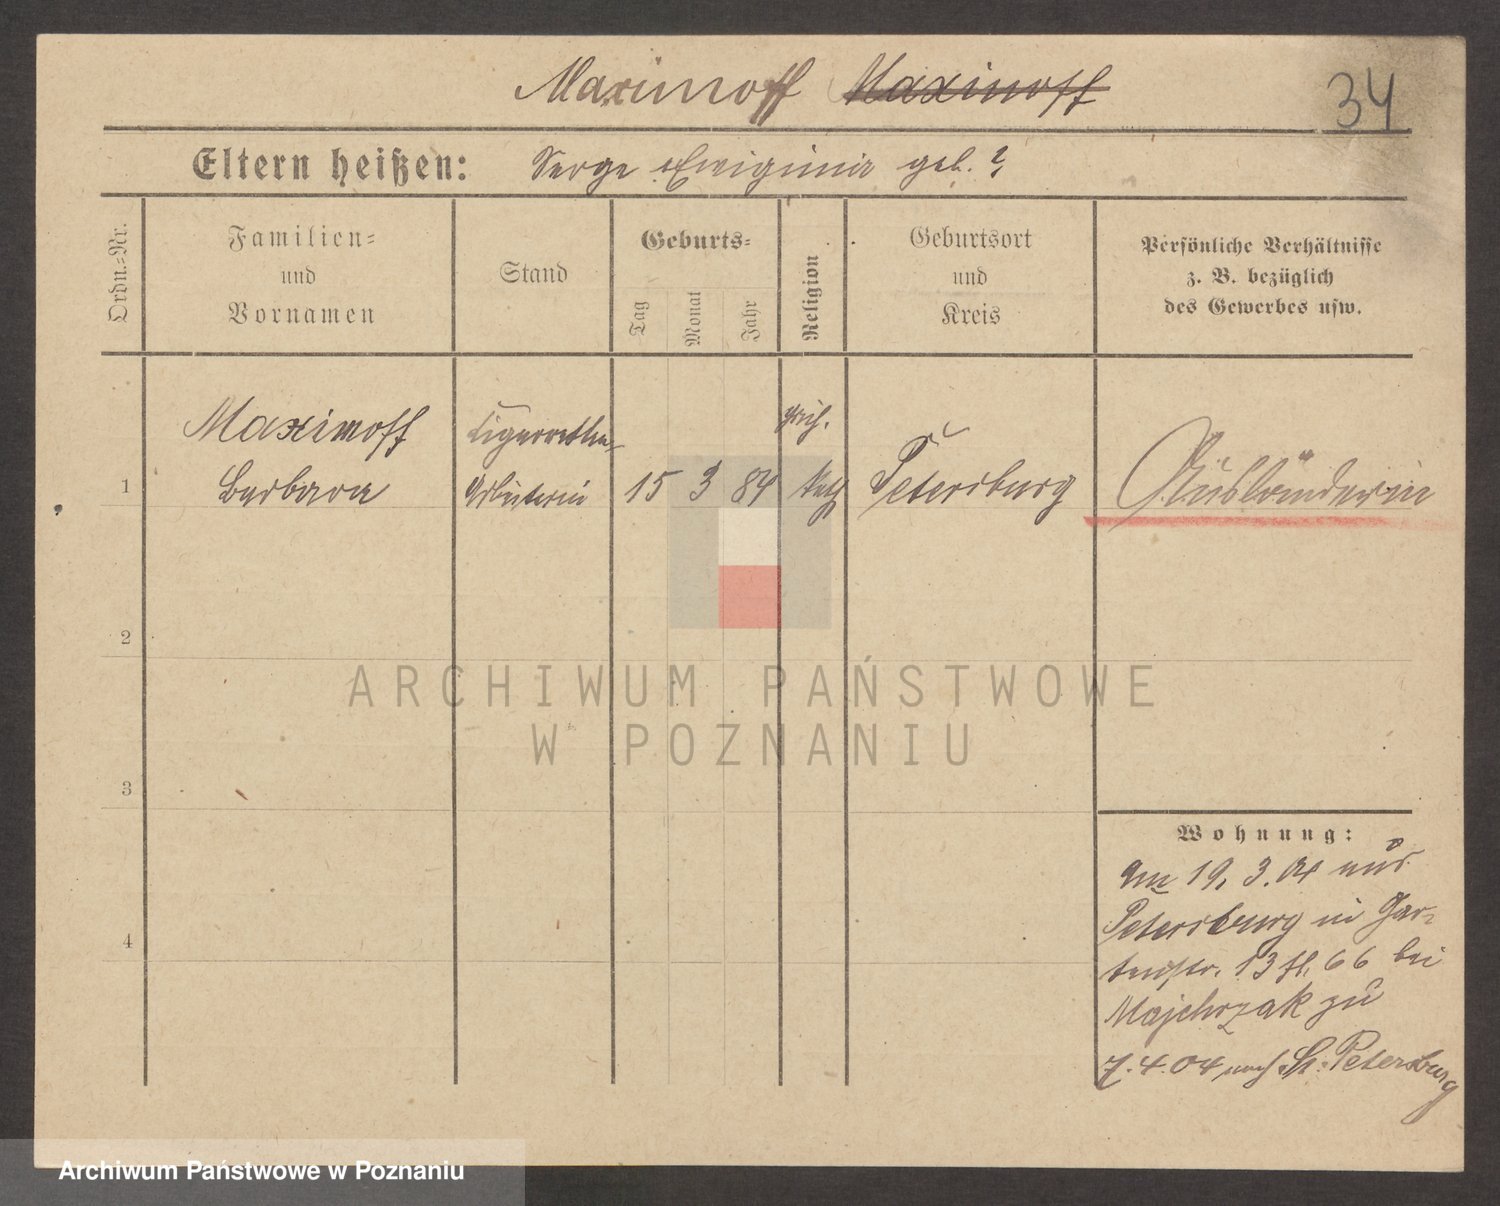 Maximoff Maxinoff
34
Eltern heißen: Serge Ewiginia geb. ?
Ordn.-Nr.
Familien-
und
Vornamen
Stand
Geburts-
Tag
Monat
Jahr
Religion
Geburtsort
und
Kreis
Persönliche Verhältnisse
z. B. bezüglich
des Gewerbes usw.
Maximoff
Barbara
Cigaretten-
Arbeiterin
1
15 3 84
griech.
kath
Petersburg
Ausländerin
2
ARCHIWUM PAŃSTWOWE
W POZNANIU
3
Wohnung:
Am 19. 3. 04 aus
Petersburg in Gar-
tenstr. 13 66 bei
Majchrzak zu
4
7. 4. 04 nach St. Petersburg
Archiwum Państwowe w Poznaniu